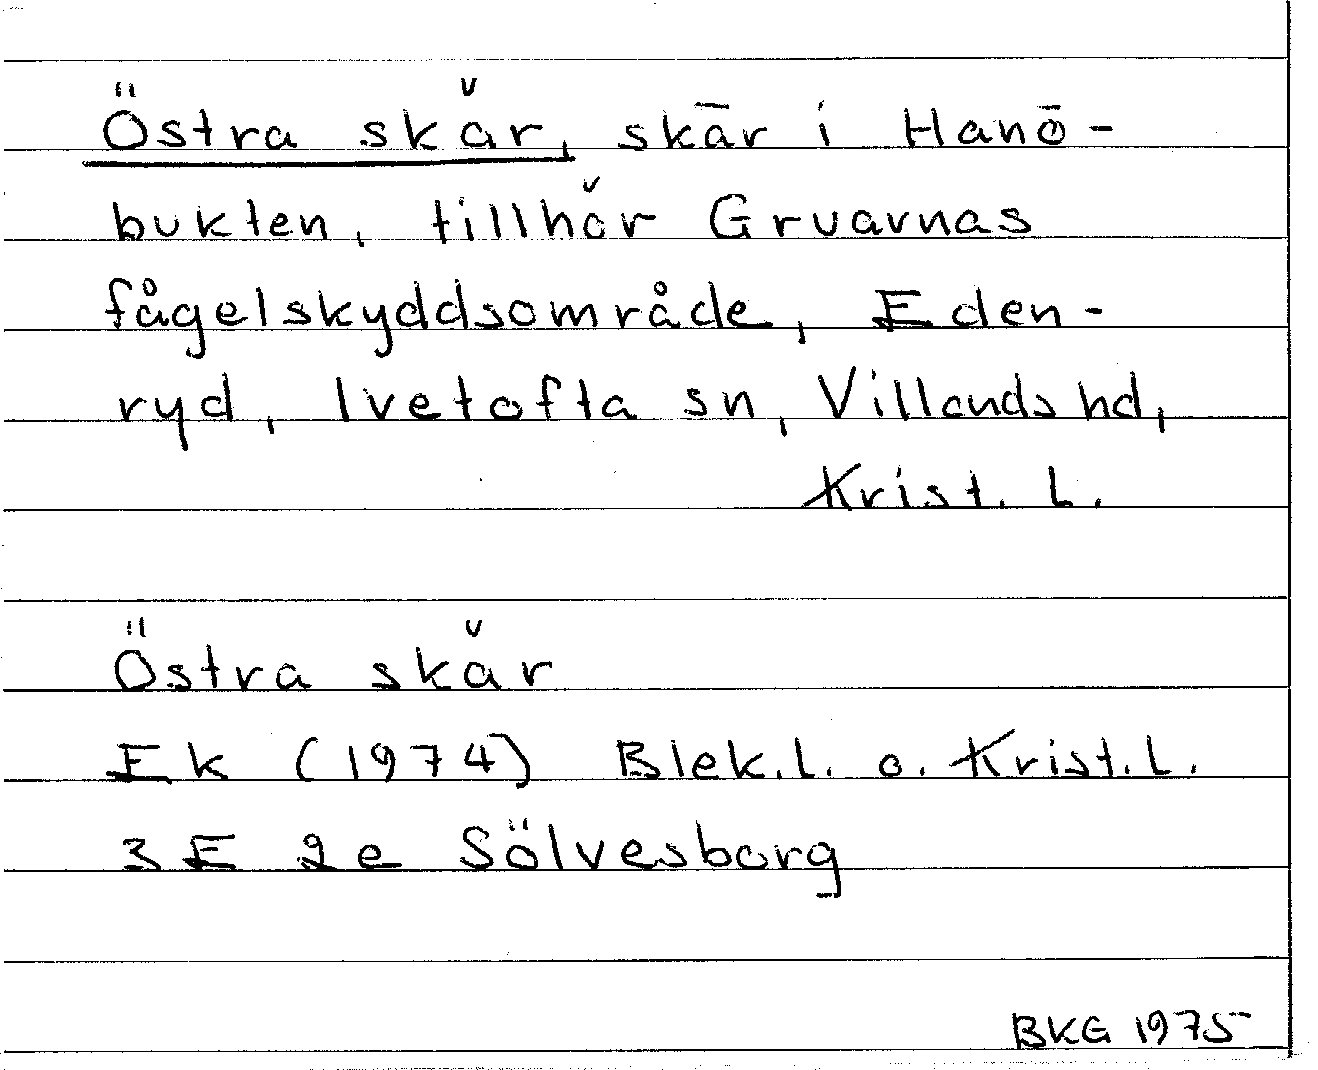 Östra skär, skär i Hanö-
bukten, tillhör Gruarnas
fågelskyddsområde, Eden-
ryd, Ivetofta sn, Villands hd,
Krist. l.
Östra skär
Ek (1974) Blek. l. o. Krist. l.
3E 2e Sölvesborg
BKG 1975